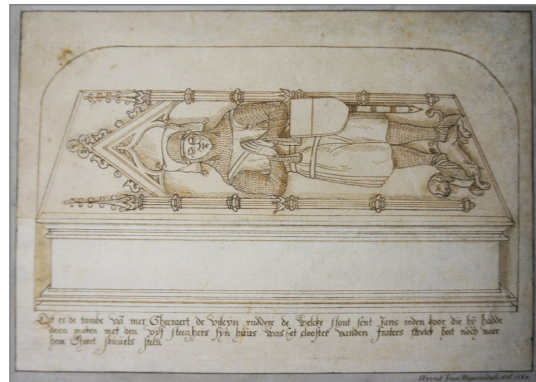 Dit es de tombe vã mer Gheraert de vileyn ruddere de welcke stont sent Jans inden koor die hij hadde
doen maken met den vijf steeghers sijn huus was het clooster vanden fraters twelck heet noch mer
here Gheert sduuels steen
Arent Van